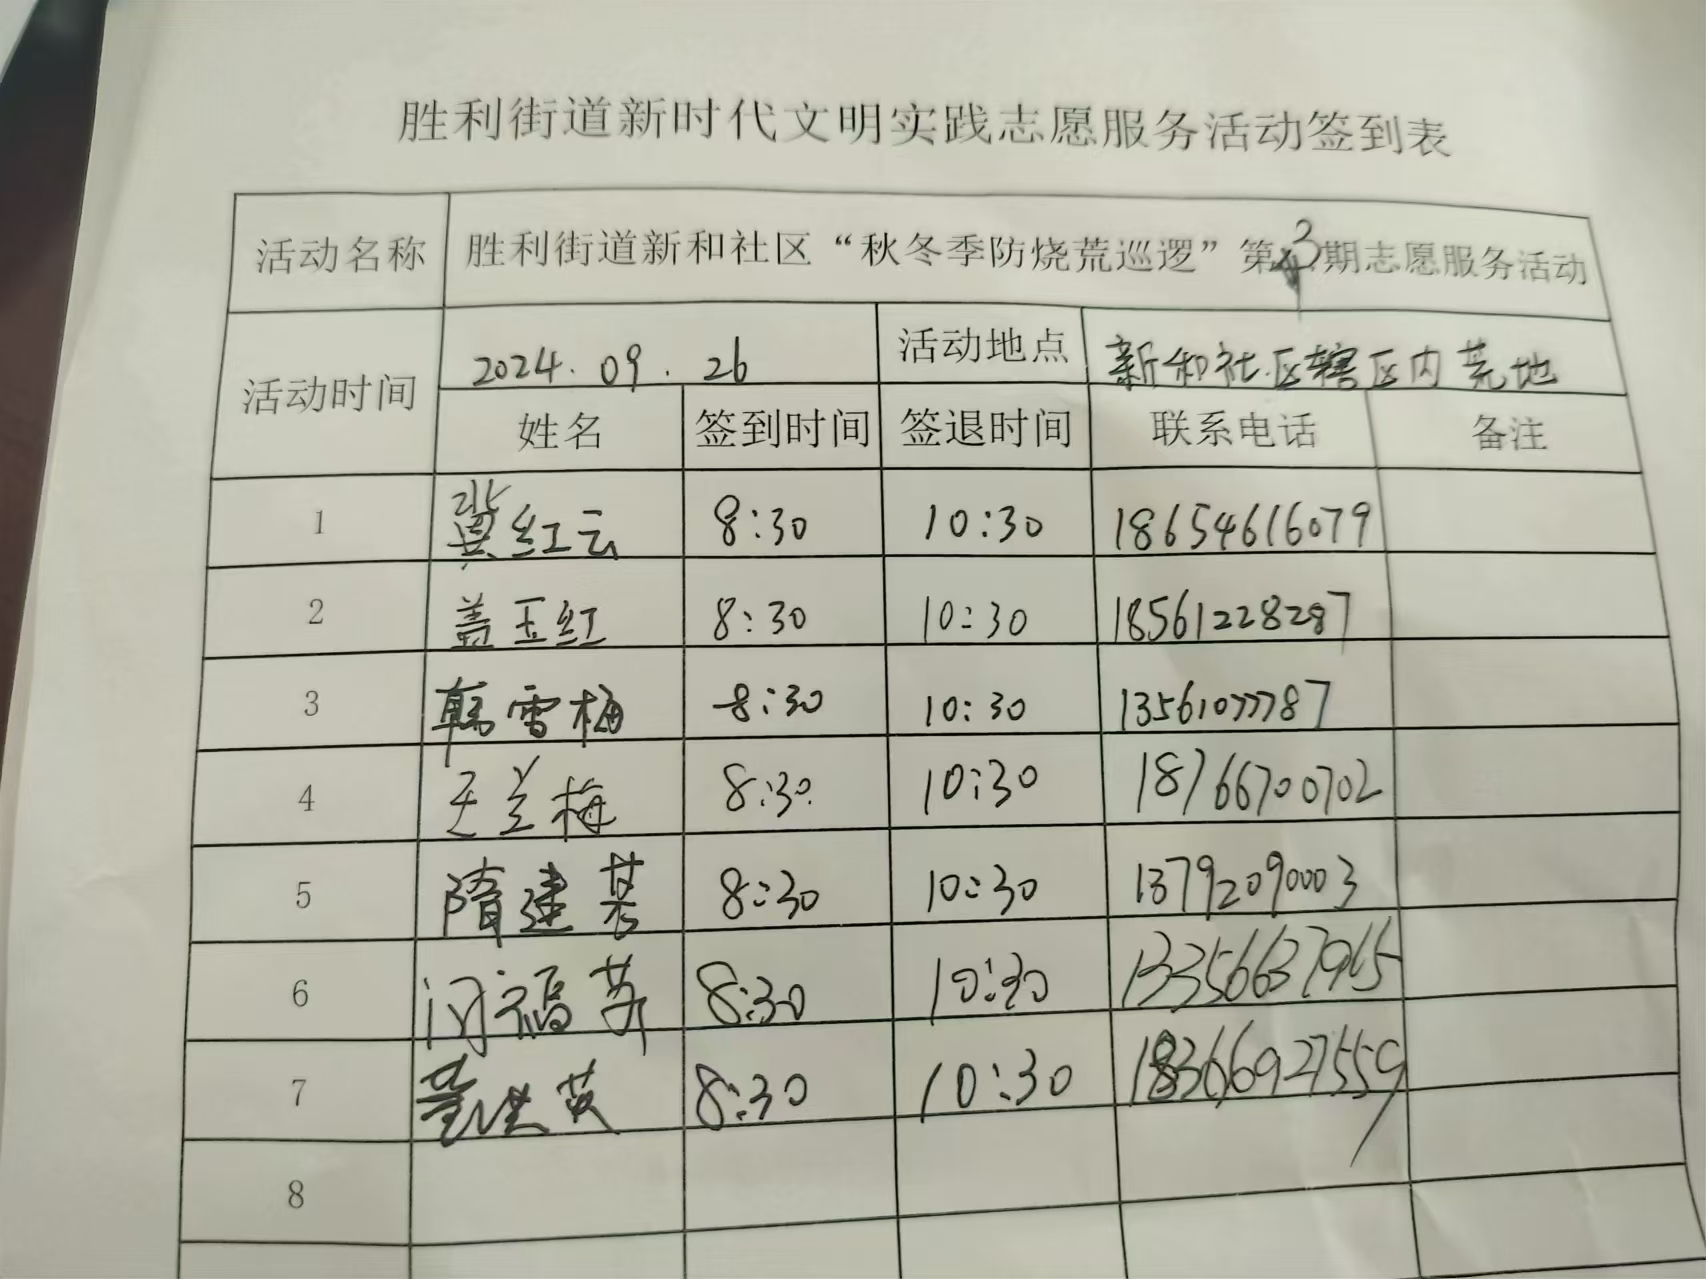 胜利街道新时代文明实践志愿服务活动签到表
活动名称 胜利街道新和社区“秋冬季防烧荒巡逻”第3期志愿服务活动
活动时间 2024.09.26 活动地点 新和社区辖区内荒地
姓名 签到时间 签退时间 联系电话 备注
1 冀红云 8:30 10:30 18654616079
2 盖玉红 8:30 10:30 18561228287
3 韩雪梅 8:30 10:30 13561077787
4 王兰梅 8:30 10:30 18766700702
5 隋建 8:30 10:30 13792090003
6 闫福 8:30 10:30 13356637965
7 8:30 10:30 18366927559
8